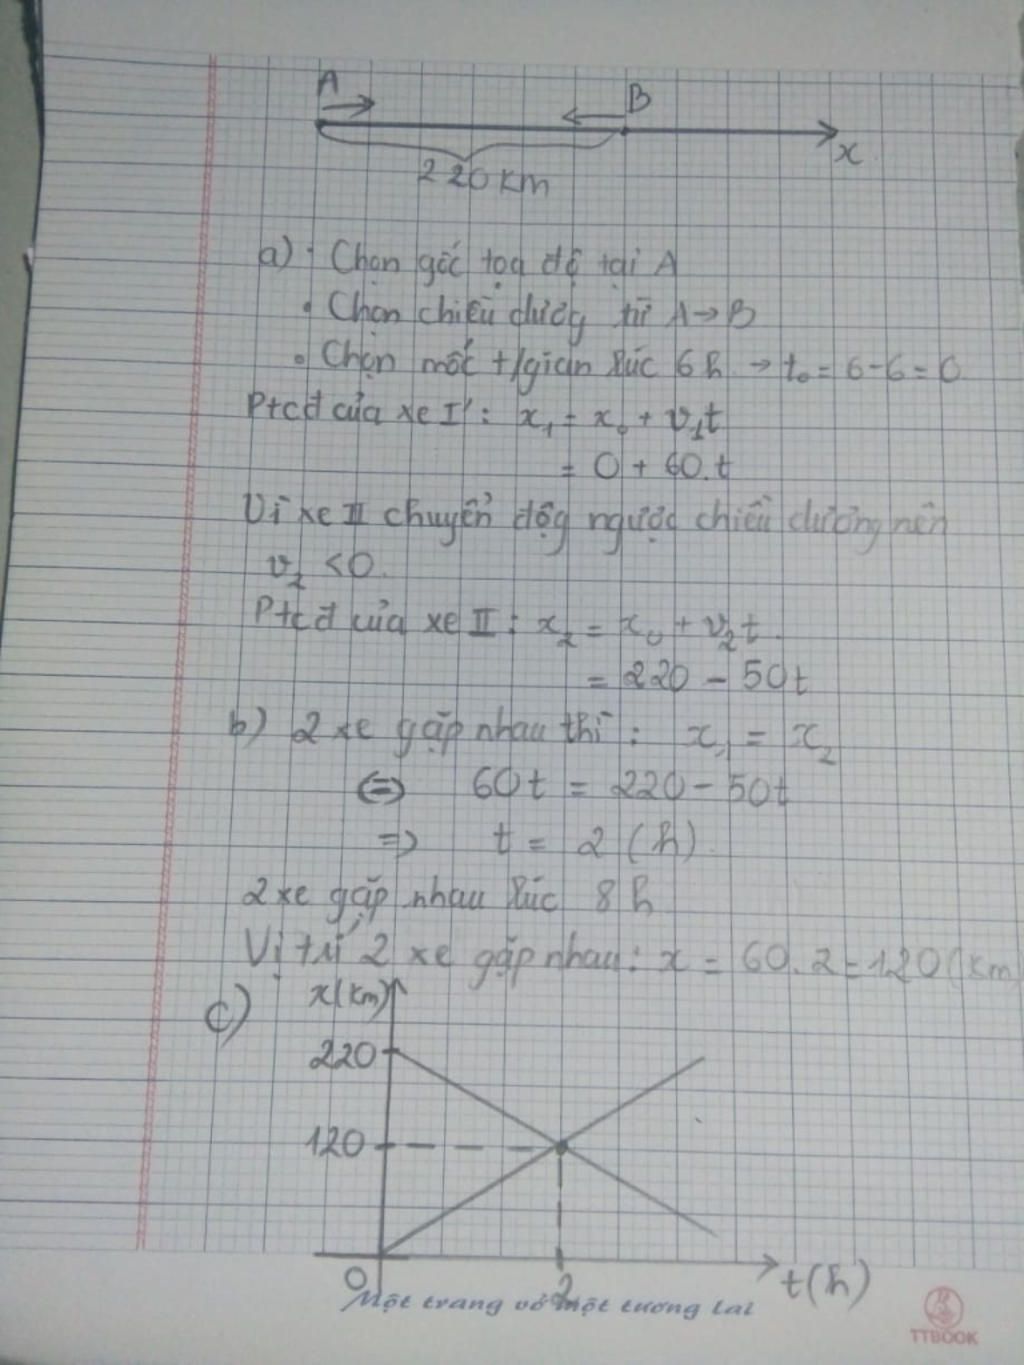 A
B
x
220 km
a) • Chọn gốc tọa độ tại A
• Chọn chiều dương từ A → B
• Chọn mốc t/gian lúc 6h → t₀ = 6 - 6 = 0
Ptcđ của xe I : x₁ = x₀ + v₁t
= 0 + 60.t
Vì xe II chuyển độg ngược chiều dương nên
v₂ < 0.
Ptcđ của xe II : x₂ = x₀ + v₂t
= 220 - 50t
b) 2 xe gặp nhau thì : x₁ = x₂
⇔ 60t = 220 - 50t
⇒ t = 2 (h)
2 xe gặp nhau lúc 8h
Vị trí 2 xe gặp nhau : x = 60.2 = 120 (km
c)
x(km)
220
120
0
2
t(h)
Một trang vở một tương lai
TTBOOK